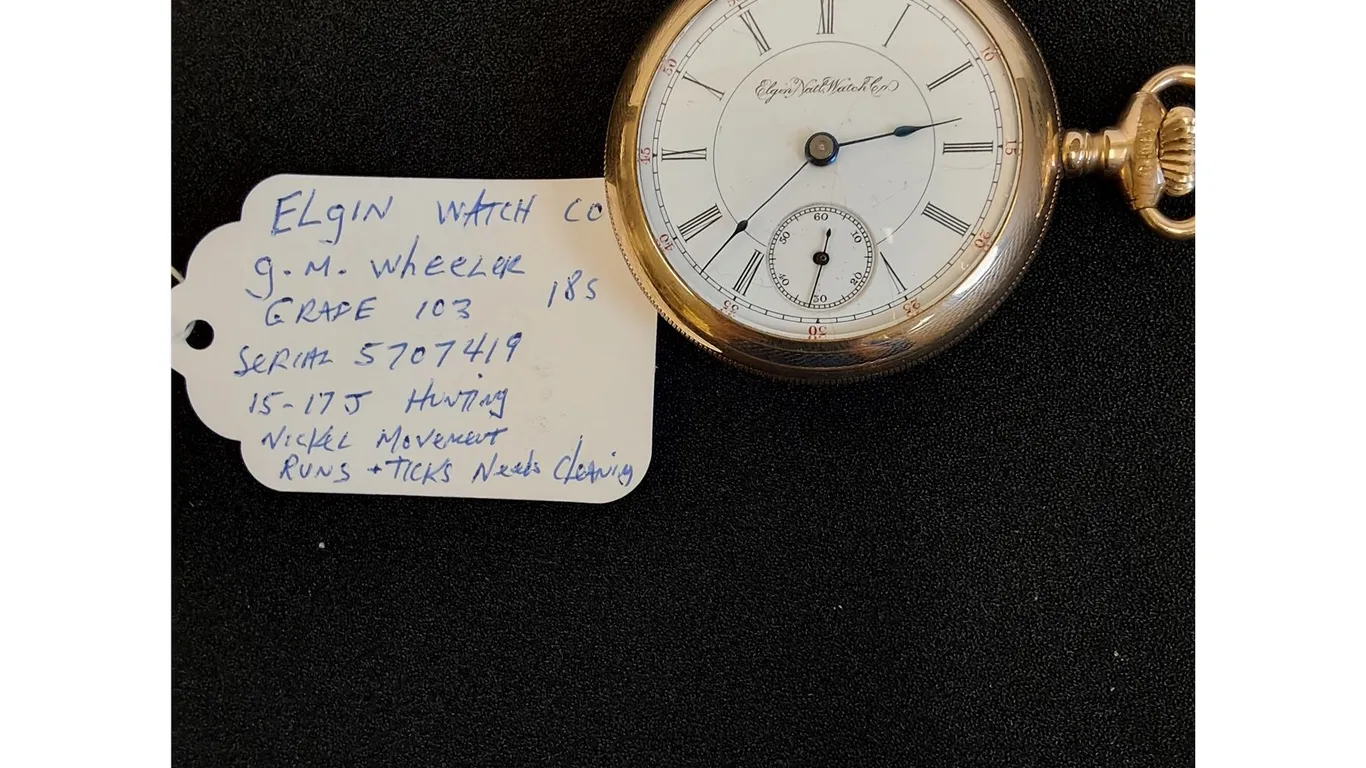 ELgIN WATCH CO
g. M. WheeLER
GRADE 103 18s
SERIAL 5707419
15-17 J HunTing
NICKEL MOVEMENT
RUNS + TICKS Needs Cleaning
Elgin Natl Watch Co.
XII
I
II
III
IIII
V
VII
VIII
IX
X
XI
10
15
20
25
30
35
40
45
50
60
10
20
30
40
50